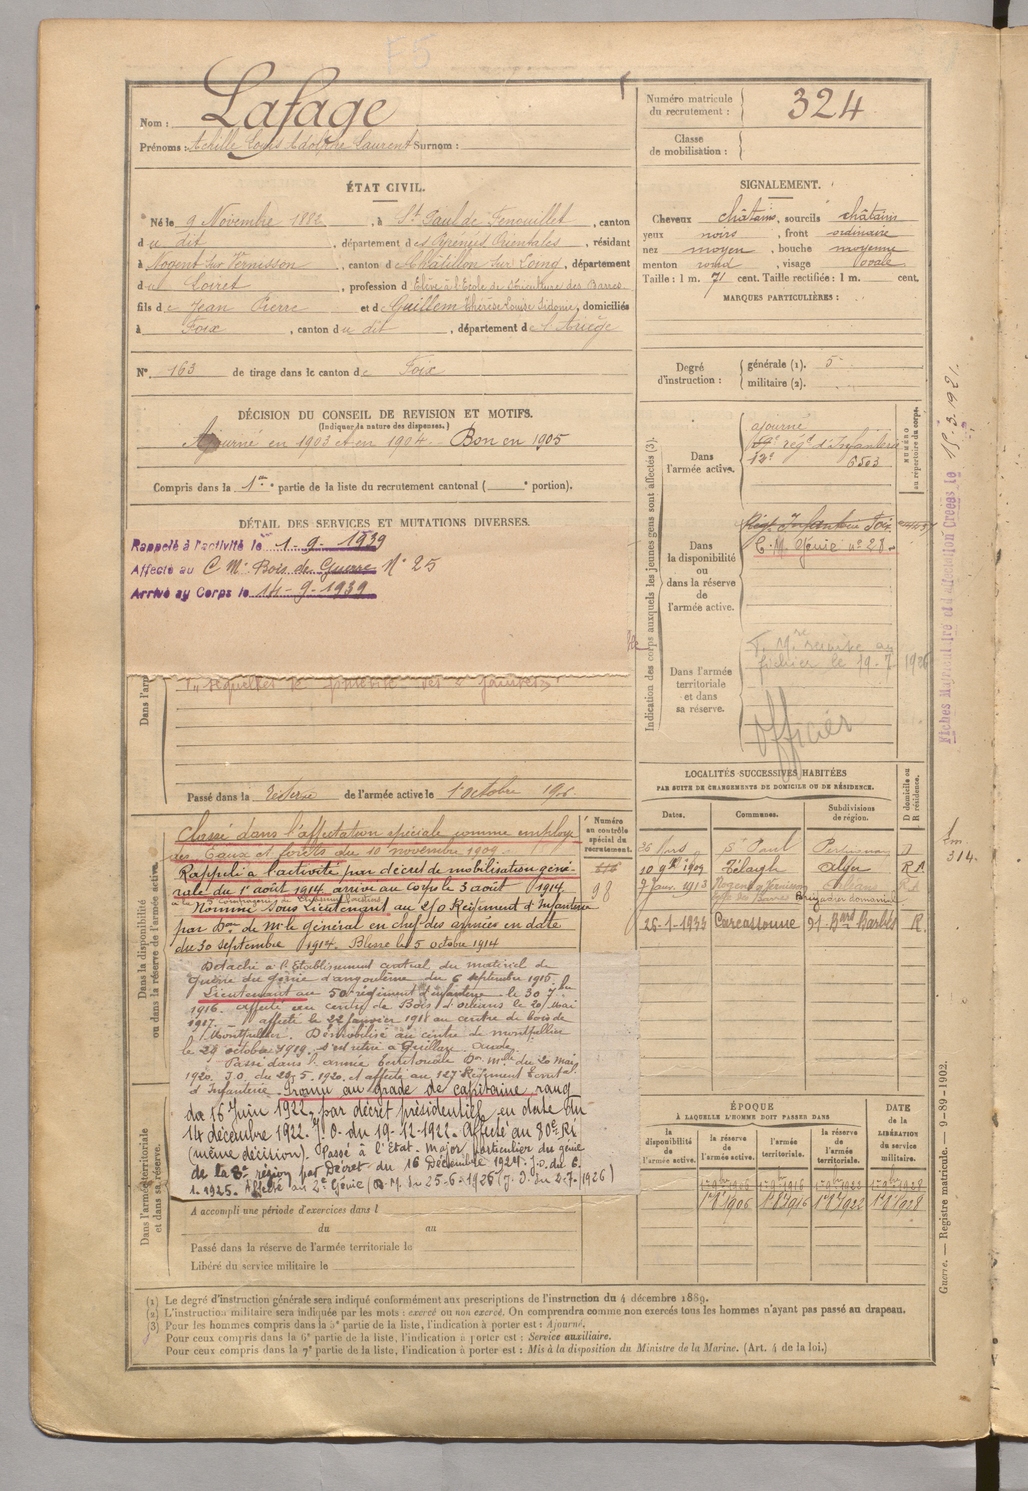 Nom : Lafage
Prénoms : Achille Louis Adolphe Laurent Surnom :
Numéro matricule du recrutement : 324
Classe de mobilisation :
ÉTAT CIVIL.
Né le 9 Novembre 1882, à St Paul de Fenouillet, canton
du dit, département des Pyrénées Orientales, résidant
à Nogent sur Vernisson, canton de Châtillon sur Loing, département
du Loiret, profession d'Elève à l'Ecole de Sylviculture des Barres
fils de Jean Pierre et de Guillem Thérèse Louise Sidonie, domiciliés
à Foix, canton du dit, département de l'Ariège
N° 163 de tirage dans le canton de Foix
SIGNALEMENT.
Cheveux châtains, sourcils châtains
yeux noirs, front ordinaire
nez moyen, bouche moyenne
menton rond, visage ovale
Taille : 1 m. 71 cent. Taille rectifiée : 1 m. cent.
MARQUES PARTICULIÈRES :
Degré d'instruction :
générale (1). 5
militaire (2).
DÉCISION DU CONSEIL DE REVISION ET MOTIFS.
(Indiquer la nature des dispenses.)
Ajourné en 1903 et en 1904 - Bon en 1905
Compris dans la 1re partie de la liste du recrutement cantonal ( e portion).
DÉTAIL DES SERVICES ET MUTATIONS DIVERSES.
Rappelé à l'activité le 1-9-1939
Affecté au C Mn Bois de Guerre N° 25
Arrivé au Corps le 14-9-1939
Passé dans la réserve de l'armée active le 1 octobre 1906
Indication des corps auxquels les jeunes gens sont affectés (3).
NUMÉRO au répertoire du corps.
Dans l'armée active.
ajourné
rég t d'Infanterie
12e 6503
Dans la disponibilité ou dans la réserve de l'armée active.
Régt Infanterie Foix
C. M. Génie n° 28
Dans l'armée territoriale et dans sa réserve.
fichier le 19-7 1926
officier
Fiches Matricules et d'affectation Créées le 15.3.1921.
Dans la disponibilité ou dans la réserve de l'armée active.
Classé dans l'affectation spéciale comme employé
des Eaux et forêts du 10 novembre 1909
Rappelé à l'activité par décret de mobilisation géné-
rale du 1er août 1914, arrivé au corps le 3 août 1914
Nommé Sous Lieutenant au 210 Régiment d'Infanterie
par Don de Mr le général en chef des armées en date
du 30 septembre 1914. Blessé le 5 octobre 1914
Numéro au contrôle spécial du recrutement.
98
Détaché à l'Etablissement central du matériel de
guerre du génie d'angoulême du 6 septembre 1915
Lieutenant au 50 régiment d'infanterie le 30 7bre
1916. affecté au centre de Bois d'orléans le 20 Mai
1917. - affecté le 22 janvier 1918 au centre de bois de
Montpellier. Démobilisé au centre de montpellier
le 29 octobre 1919, s'est retiré à Quillan Aude
Passé dans l'armée territoriale Don Mlle du 20 mai
1920. J.O. du 29.5.1920. et affecté au 127 Régiment Territ
d'Infanterie. Promu au grade de capitaine, rang
du 16 Juin 1922, par décret présidentiel en date du
14 décembre 1922. J.O. du 19-12-1922. Affecté au 80e RI
(même décision). Passé à l'Etat-Major particulier du génie
de la 8e région par Décret du 16 Décembre 1924. J.O. du 6.
1.1925. Affecté au 2e Génie (D.M. du 25-6-1926 (J.O. du 2-7-1926)
Dans l'armée territoriale et dans sa réserve.
A accompli une période d'exercices dans l
du au
Passé dans la réserve de l'armée territoriale le
Libéré du service militaire le
LOCALITÉS SUCCESSIVES HABITÉES
PAR SUITE DE CHANGEMENTS DE DOMICILE OU DE RÉSIDENCE.
Dates. Communes. Subdivisions de région. D domicile ou R résidence.
St Paul Perpignan D
10 9bre 1909 Télagh Alger R
9 Janv. 1913 Nogent s/ Vernisson Orléans R
26-1-1933 Carcassonne 91 Bard Barbès R.
ÉPOQUE
À LAQUELLE L'HOMME DOIT PASSER DANS
DATE de la LIBÉRATION du service militaire.
la disponibilité de l'armée active.
la réserve de l'armée active.
l'armée territoriale.
la réserve de l'armée territoriale.
1er 8bre 1906 1er 8bre 1916 1er 8bre 1922 1er 8bre 1928
(1) Le degré d'instruction générale sera indiqué conformément aux prescriptions de l'instruction du 4 décembre 1889.
(2) L'instruction militaire sera indiquée par les mots : exercé ou non exercé. On comprendra comme non exercés tous les hommes n'ayant pas passé au drapeau.
(3) Pour les hommes compris dans la 5e partie de la liste, l'indication à porter est : Ajourné.
Pour ceux compris dans la 6e partie de la liste, l'indication à porter est : Service auxiliaire.
Pour ceux compris dans la 7e partie de la liste, l'indication à porter est : Mis à la disposition du Ministre de la Marine. (Art. 4 de la loi.)
Guerre. — Registre matricule. — 9-89-1902.
314.